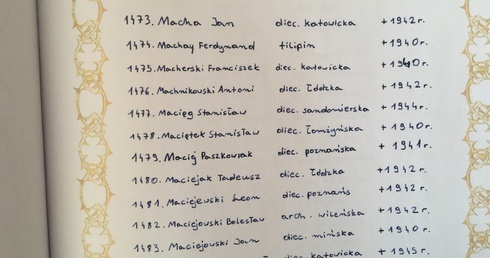 1473. Macha Jan diec. katowicka +1942r.
1474. Machay Ferdynand filipin +1940r.
1475. Macherski Franciszek diec. katowicka +1940r.
1476. Machnikowski Antoni diec. Łódzka +1942r.
1477. Macięg Stanisław diec. sandomierska +1944r.
1478. Maciętek Stanisław diec. Łomżyńska +1940r.
1479. Maciej Paszkowiak diec. poznańska +1941r.
1480. Maciejak Tadeusz diec. Łódzka +1942r.
1481. Maciejewski Leon diec. poznańs +1942r.
1482. Maciejowski Bolesław arch. wileńska +1942r.
1483. Maciejowski Jan diec. mińska +1940r.
diec. katowicka +1945r.